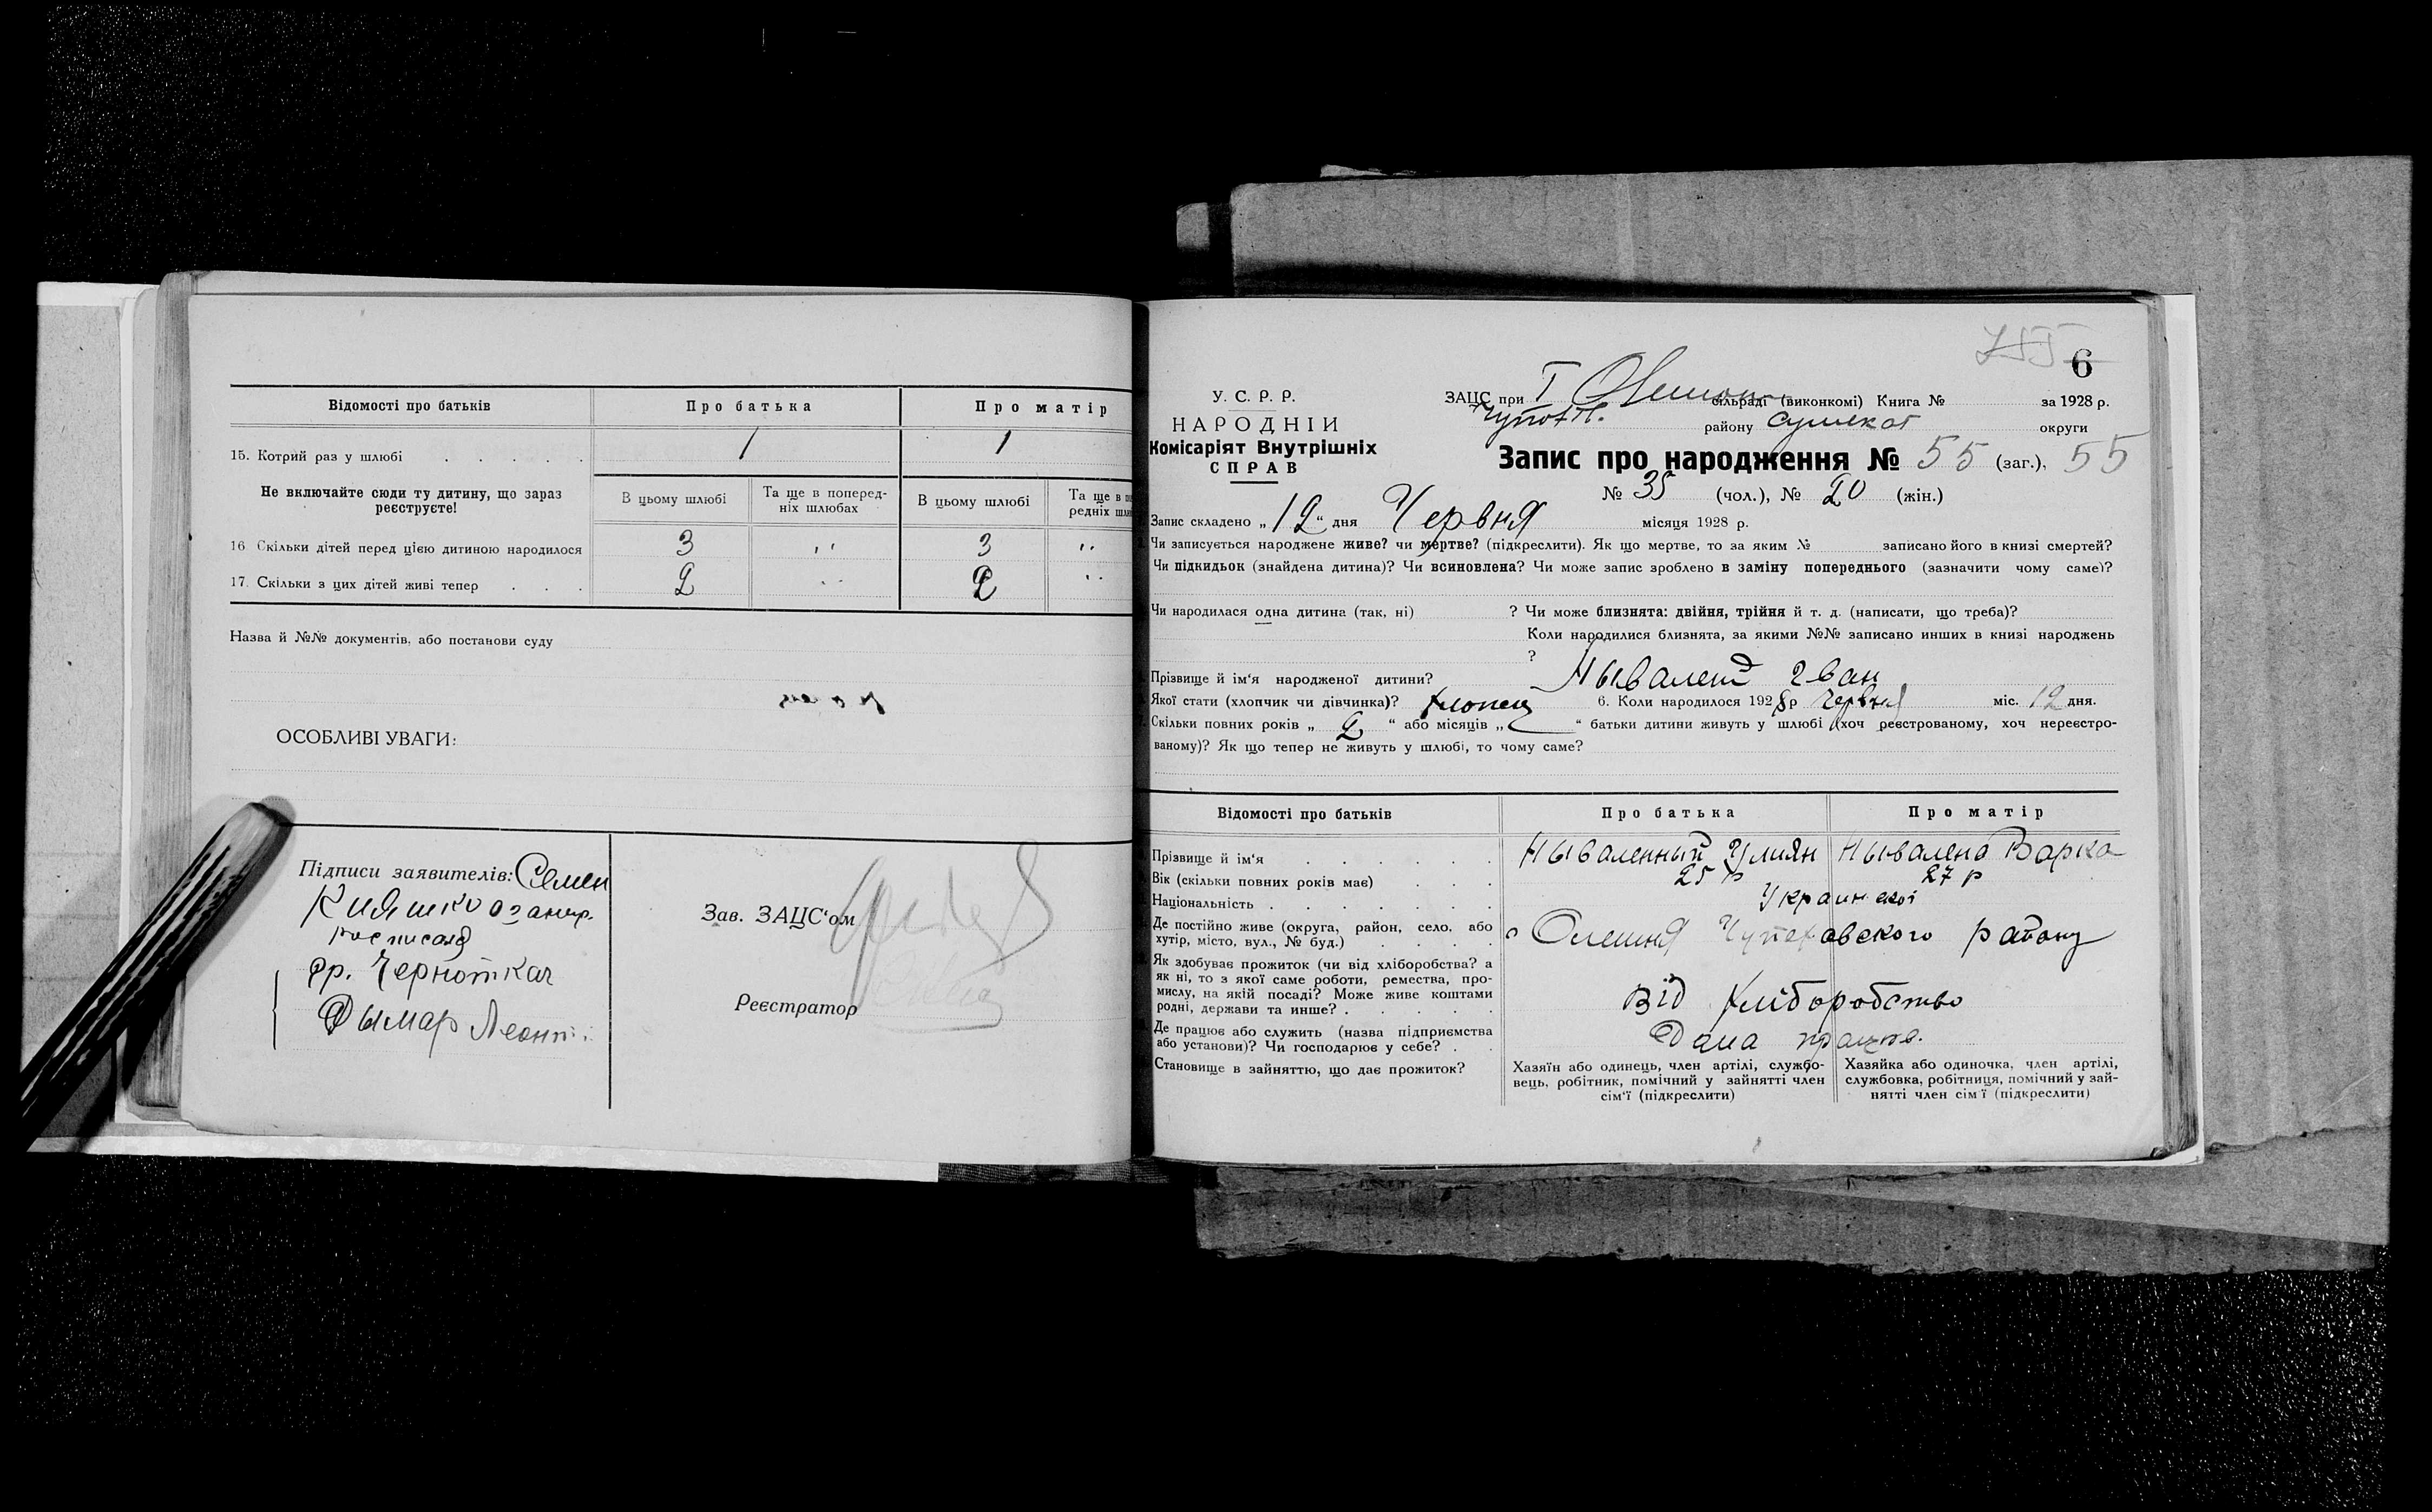 Відомості про батьків
Про батька
Про матір
15. Котрий раз у шлюбі
1
1
Не включайте сюди ту дитину, що зараз реєструєте!
В цьому шлюбі
Та ще в поперед-
ніх шлюбах
В цьому шлюбі
Та ще в по
редніх шлю
16 Скільки дітей перед цією дитиною народилося
3
"
3
"
17. Скільки з цих дітей живі тепер
2
"
2
"
Назва й №№ документів, або постанови суду
ОСОБЛИВІ УВАГИ:
Підписи заявителів: Семен
Кияшко
росписався
Черноткач
Дымар Леонт
Зав. ЗАЦС'ом
Реєстратор
6
У. С. Р. Р.
НАРОДНІЙ
Комісаріят Внутрішніх
СПРАВ
ЗАЦС при I Олешан сільраді (виконкомі) Книга № за 1928 р.
району Сумської округи
Запис про народження № 55 (заг.), 55
№ 35 (чол.), № 20 (жін.)
Запис складено „12“ дня Червня місяця 1928 р.
Чи записується народжене живе? чи мертве? (підкреслити). Як що мертве, то за яким № записано його в книзі смертей?
Чи підкидьок (знайдена дитина)? Чи всиновлена? Чи може запис зроблено в заміну попереднього (зазначити чому саме)?
Чи народилася одна дитина (так, ні) ? Чи може близнята: двійня, трійня й т. д. (написати, що треба)?
Коли народилися близнята, за якими №№ записано инших в книзі народжень
?
Прізвище й ім'я народженої дитини? Нывалений Іван
Якої стати (хлопчик чи дівчинка)? хлопец 6. Коли народилося 1928 р Червня міс. 12 дня.
Скільки повних років „ 2 “ або місяців „ “ батьки дитини живуть у шлюбі (хоч реєстрованому, хоч нереєстро-
ваному)? Як що тепер не живуть у шлюбі, то чому саме?
Відомості про батьків
Про батька
Про матір
Прізвище й ім'я
Нываленный Улиян
Нывалена Варка
Вік (скільки повних років має)
25 р
27 р
Національність
Украинскоі
Де постійно живе (округа, район, село, або
хутір, місто, вул., № буд.)
с Олешня Чупаховского району
Як здобуває прожиток (чи від хліборобства? а
як ні, то з якої саме роботи, ремества, про-
мислу, на якій посаді? Може живе коштами
родні, держави та инше?
Від хліборобство
Де працює або служить (назва підприємства
або установи)? Чи господарює у себе?
Дома
Становище в зайняттю, що дає прожиток?
Хазяїн або одинець, член артілі, службо-
вець, робітник, помічний у зайнятті член
сім'ї (підкреслити)
Хазяйка або одиночка, член артілі,
службовка, робітниця, помічний у зай-
нятті член сім'ї (підкреслити)